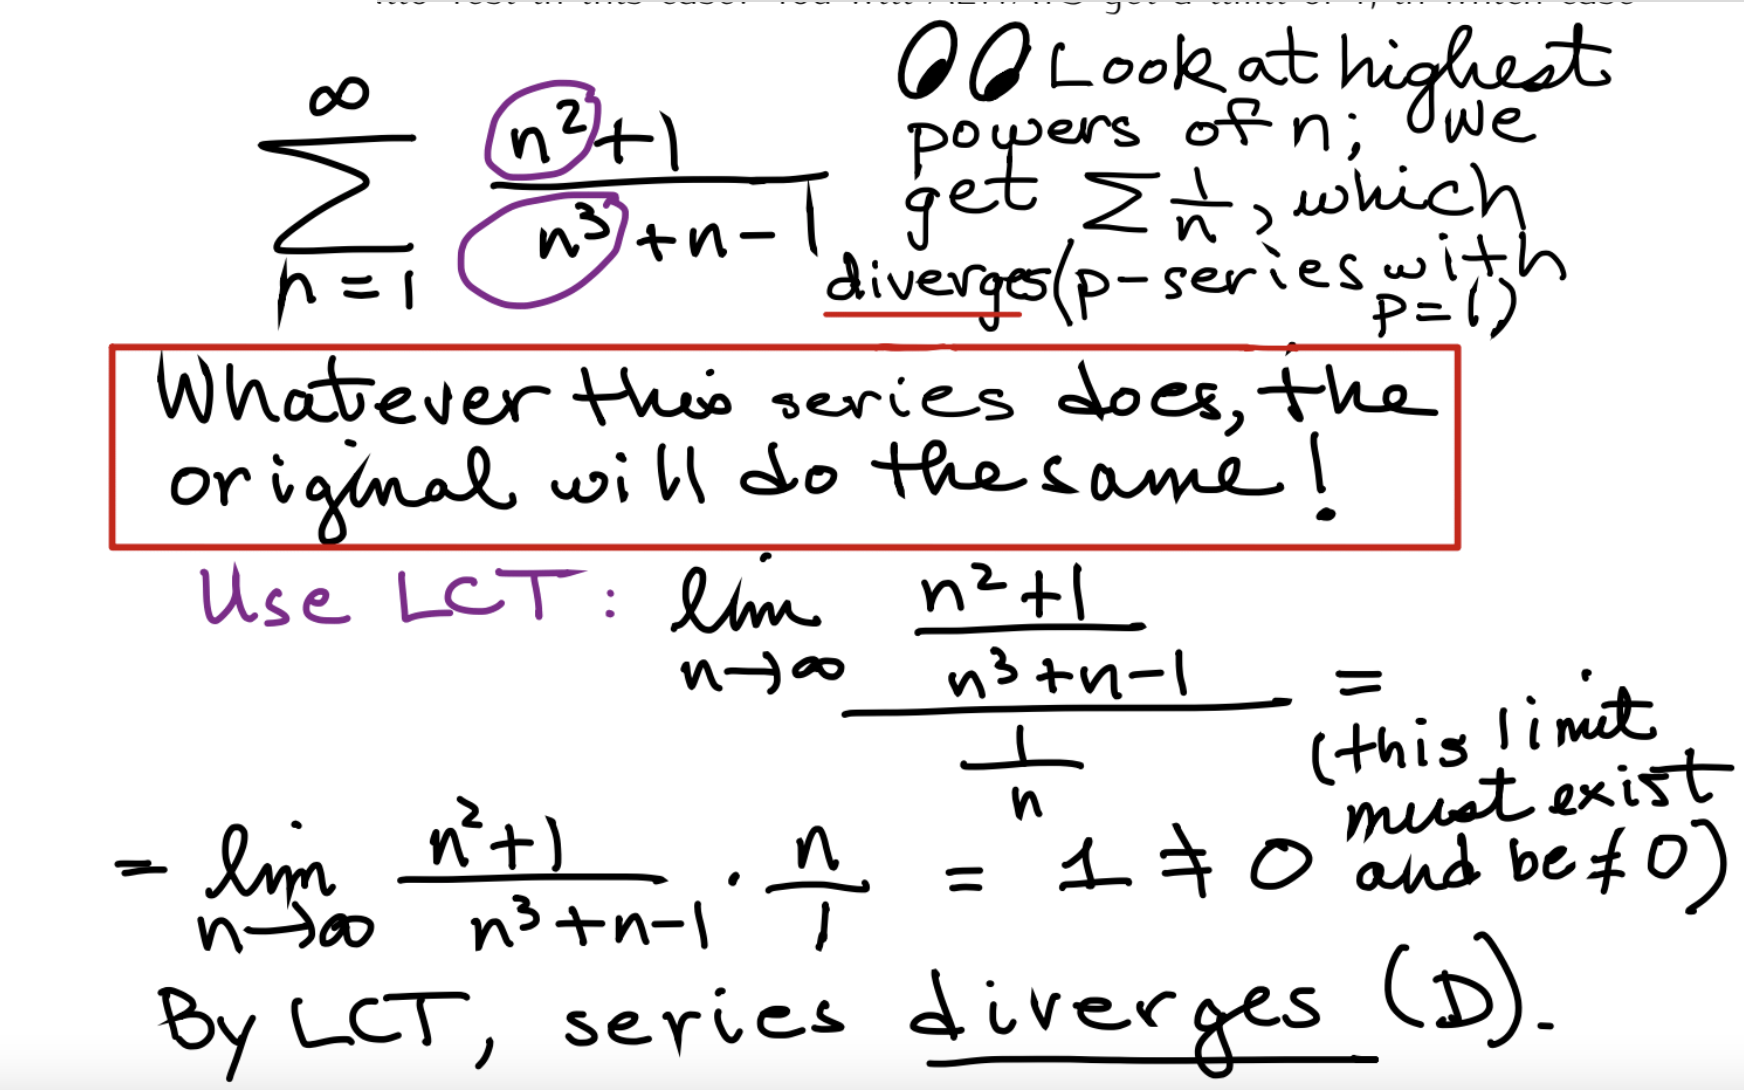 ∞
∑
n=1
n²+1
n³+n-1
Look at highest
powers of n; we
get ∑ 1/n, which
diverges (p-series with
p=1)
Whatever this series does, the
original will do the same!
Use LCT: lim n→∞ (n²+1)/(n³+n-1) / (1/n) =
(this limit
must exist
and be ≠ 0)
= lim n→∞ (n²+1)/(n³+n-1) · n/1 = 1 ≠ 0
By LCT, series diverges (D).